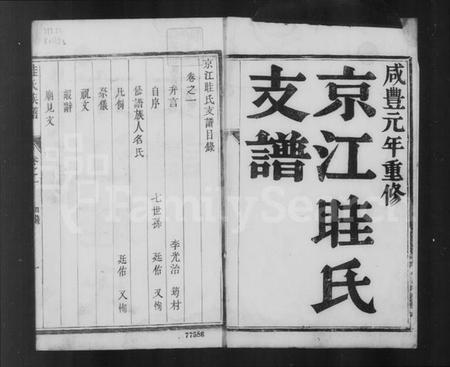 咸豐元年重修
京江眭氏
支譜
京江眭氏支譜目錄
卷之一
弁言 李光治 筠村
自序 七世孫 廷佑 又梅
修譜族人名氏
凡例 廷佑 又梅
祭儀
祝文
嘏辭
廟見文
眭氏族譜
卷之一
目錄
一
77586
FamilySearch